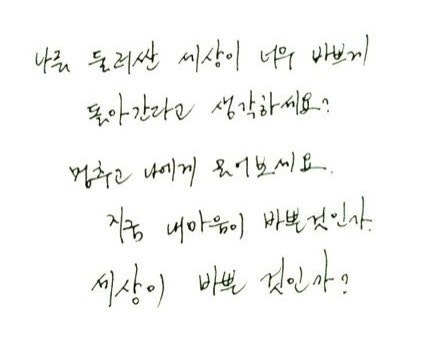 나를 둘러싼 세상이 너무 바쁘게
돌아간다라고 생각하세요?
멈추고 나에게 물어보세요.
지금 내마음이 바쁜것인가.
세상이 바쁜 것인가?